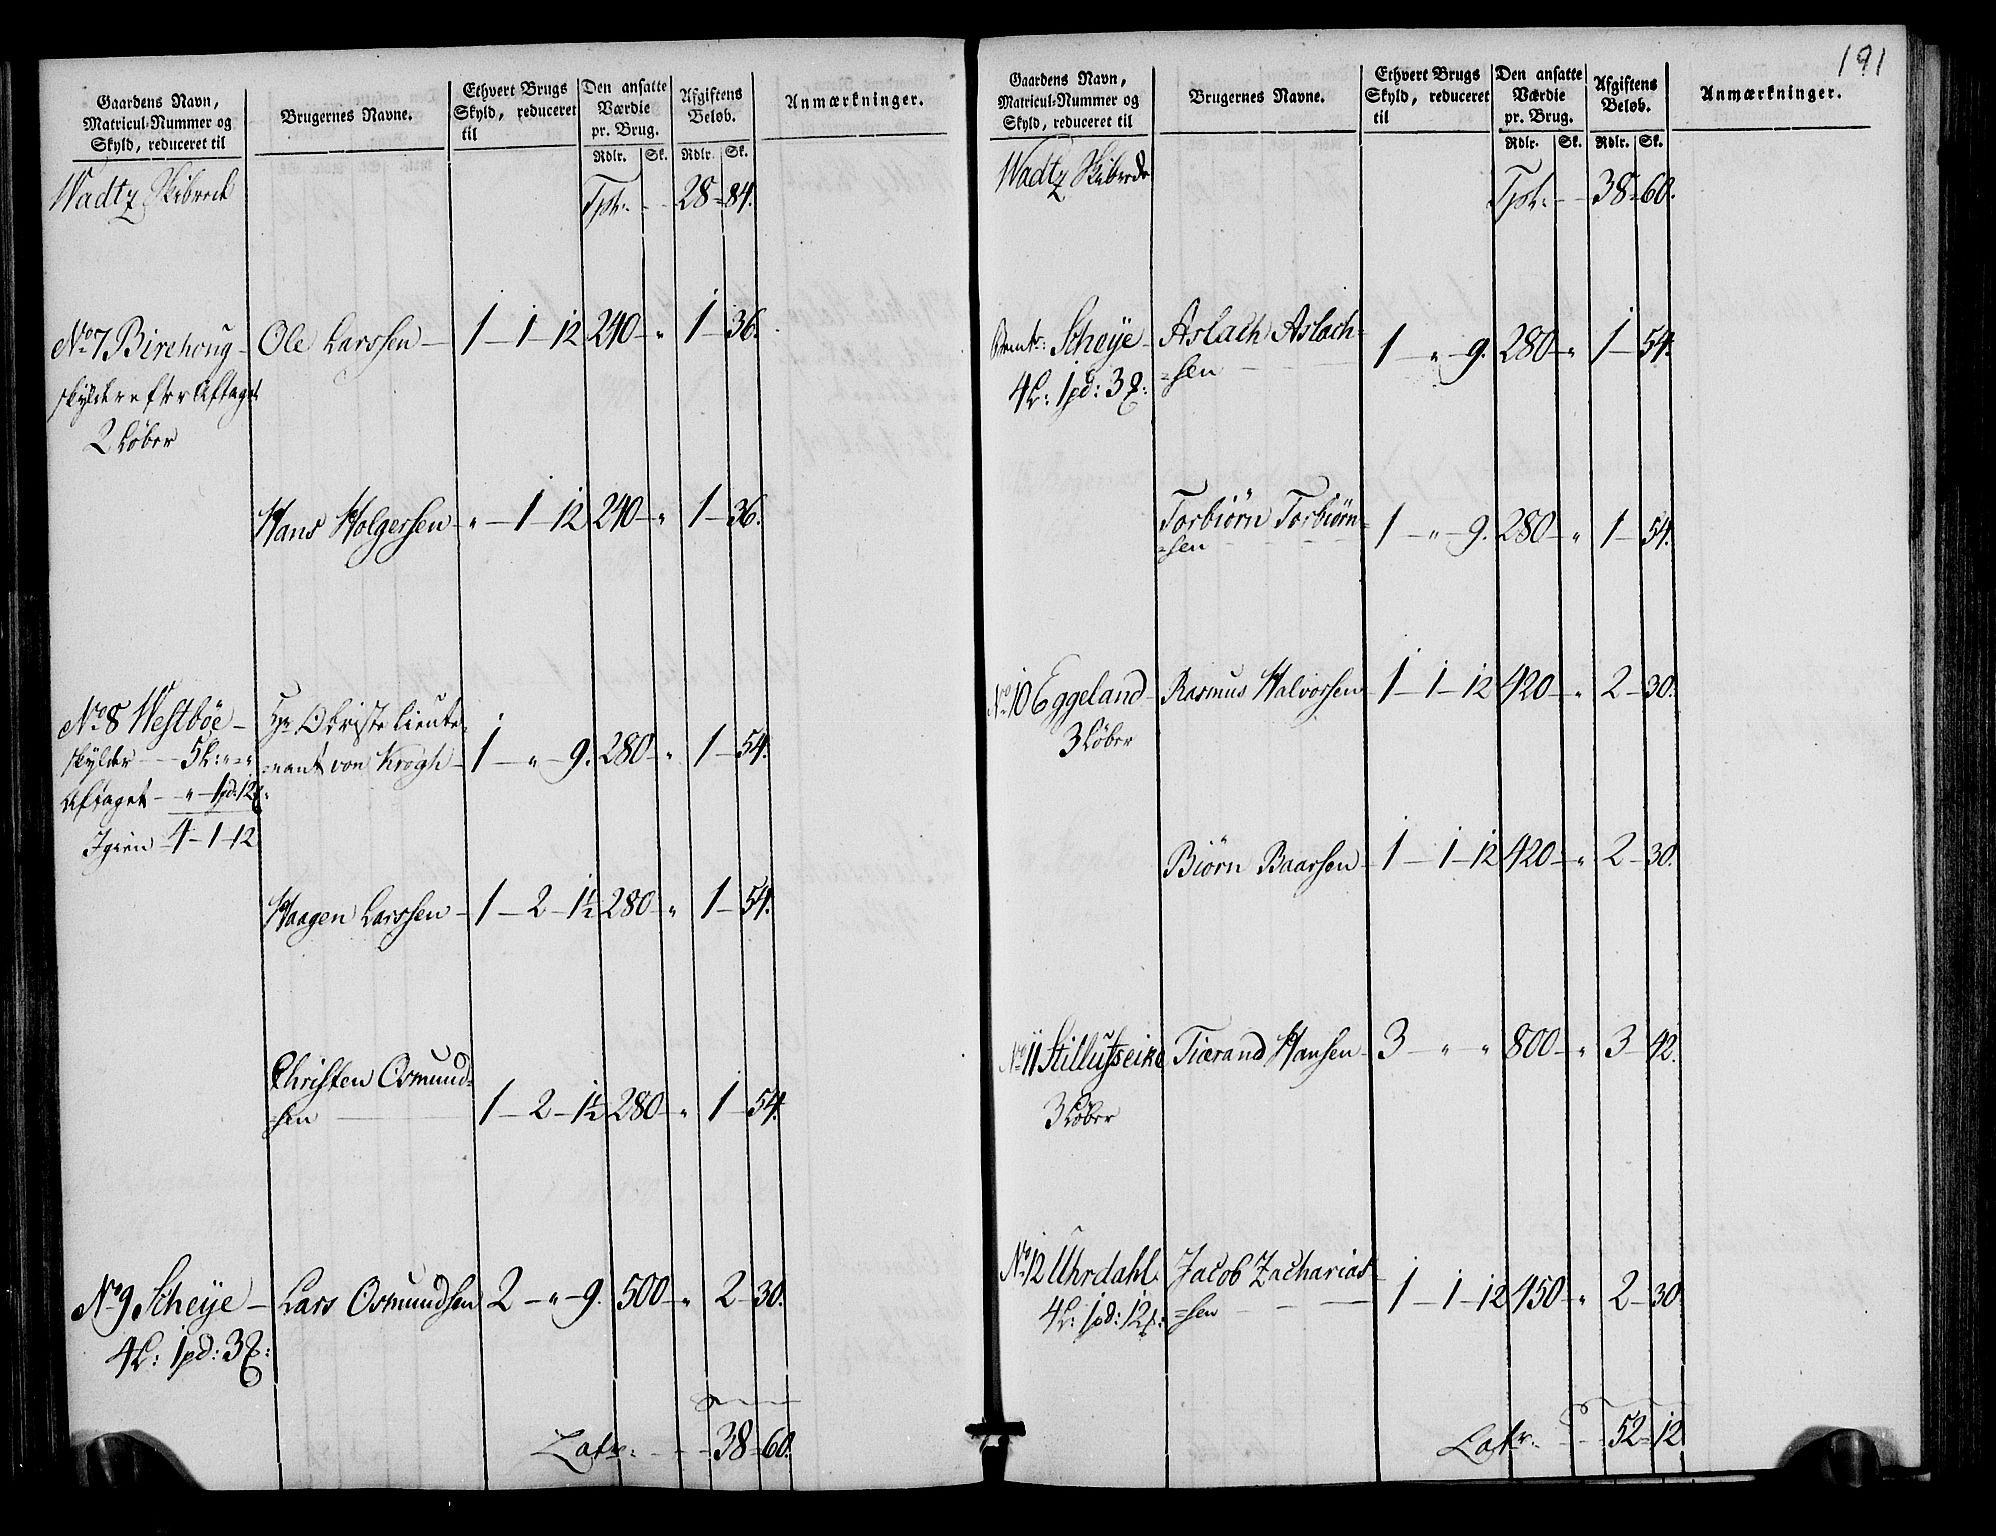 191
Gaardens Navn,
Matricul-Nummer og
Skyld, reduceret til
Brugernes Navne.
Ethvert Brugs
Skyld, reduceret
til
Den ansatte
Værdie
pr. Brug.
Afgiftens
Beløb.
Anmærkninger.
Rdlr. Sk. Rdlr. Sk.
Wadtz Skibrede Tpst: 28 - 84.
No 7 Birehoug - Ole Larssen - 1 - 1 - 12 240 - " 1 - 36.
skylder efter Aftaget
2 Løber
Hans Holgersen - " - 1 - 12 240 - " 1 - 36.
No 8 Westbøe - Hr Obriste Lieute-
skylder - 5 L: " - " =nant von Krogh - 1 - " - 9. 280 - " 1 - 54.
Aftaget - " - 1 pd: 12
Igien 4 - 1 - 12
Haagen Larssen - 1 - 2 - 1½ 280 - " 1 - 54.
Christen Osmund-
=sen 1 - 2 - 1½ 280 - " 1 - 54.
No 9 Scheye - Lars Osmundsen 2 - " - 9. 500 - " 2 - 30.
4 L: 1 pd: 3
Latr: - - 38 - 60.
Gaardens Navn,
Matricul-Nummer og
Skyld, reduceret til
Brugernes Navne.
Ethvert Brugs
Skyld, reduceret
til
Den ansatte
Værdie
pr. Brug.
Afgiftens
Beløb.
Anmærkninger.
Rdlr. Sk. Rdlr. Sk.
Wadtz Skibrede Tpst: - - 38 - 60.
Scheye - Aslach Aslach-
4 L: 1 pd: 3 =sen 1 - " - 9. 280 - " 1 - 54.
Torbiørn Torbiørn-
=sen 1 - " - 9. 280 - " 1 - 54.
No 10 Eggeland - Rasmus Halvorsen 1 - 1 - 12 420 - " 2 - 30.
3 Løber
Biørn Baarsen - 1 - 1 - 12 420 - " 2 - 30.
No 11 Stillufseike Tierand Hansen - 3 - " " 800 - " 3 - 42.
3 Løber
No 12 Uhrdahl. Jacob Zacharias-
4 L: 1 pd: 12 =sen 1 - 1 - 12 450 - " 2 - 30.
Latr: - - 52 - 12